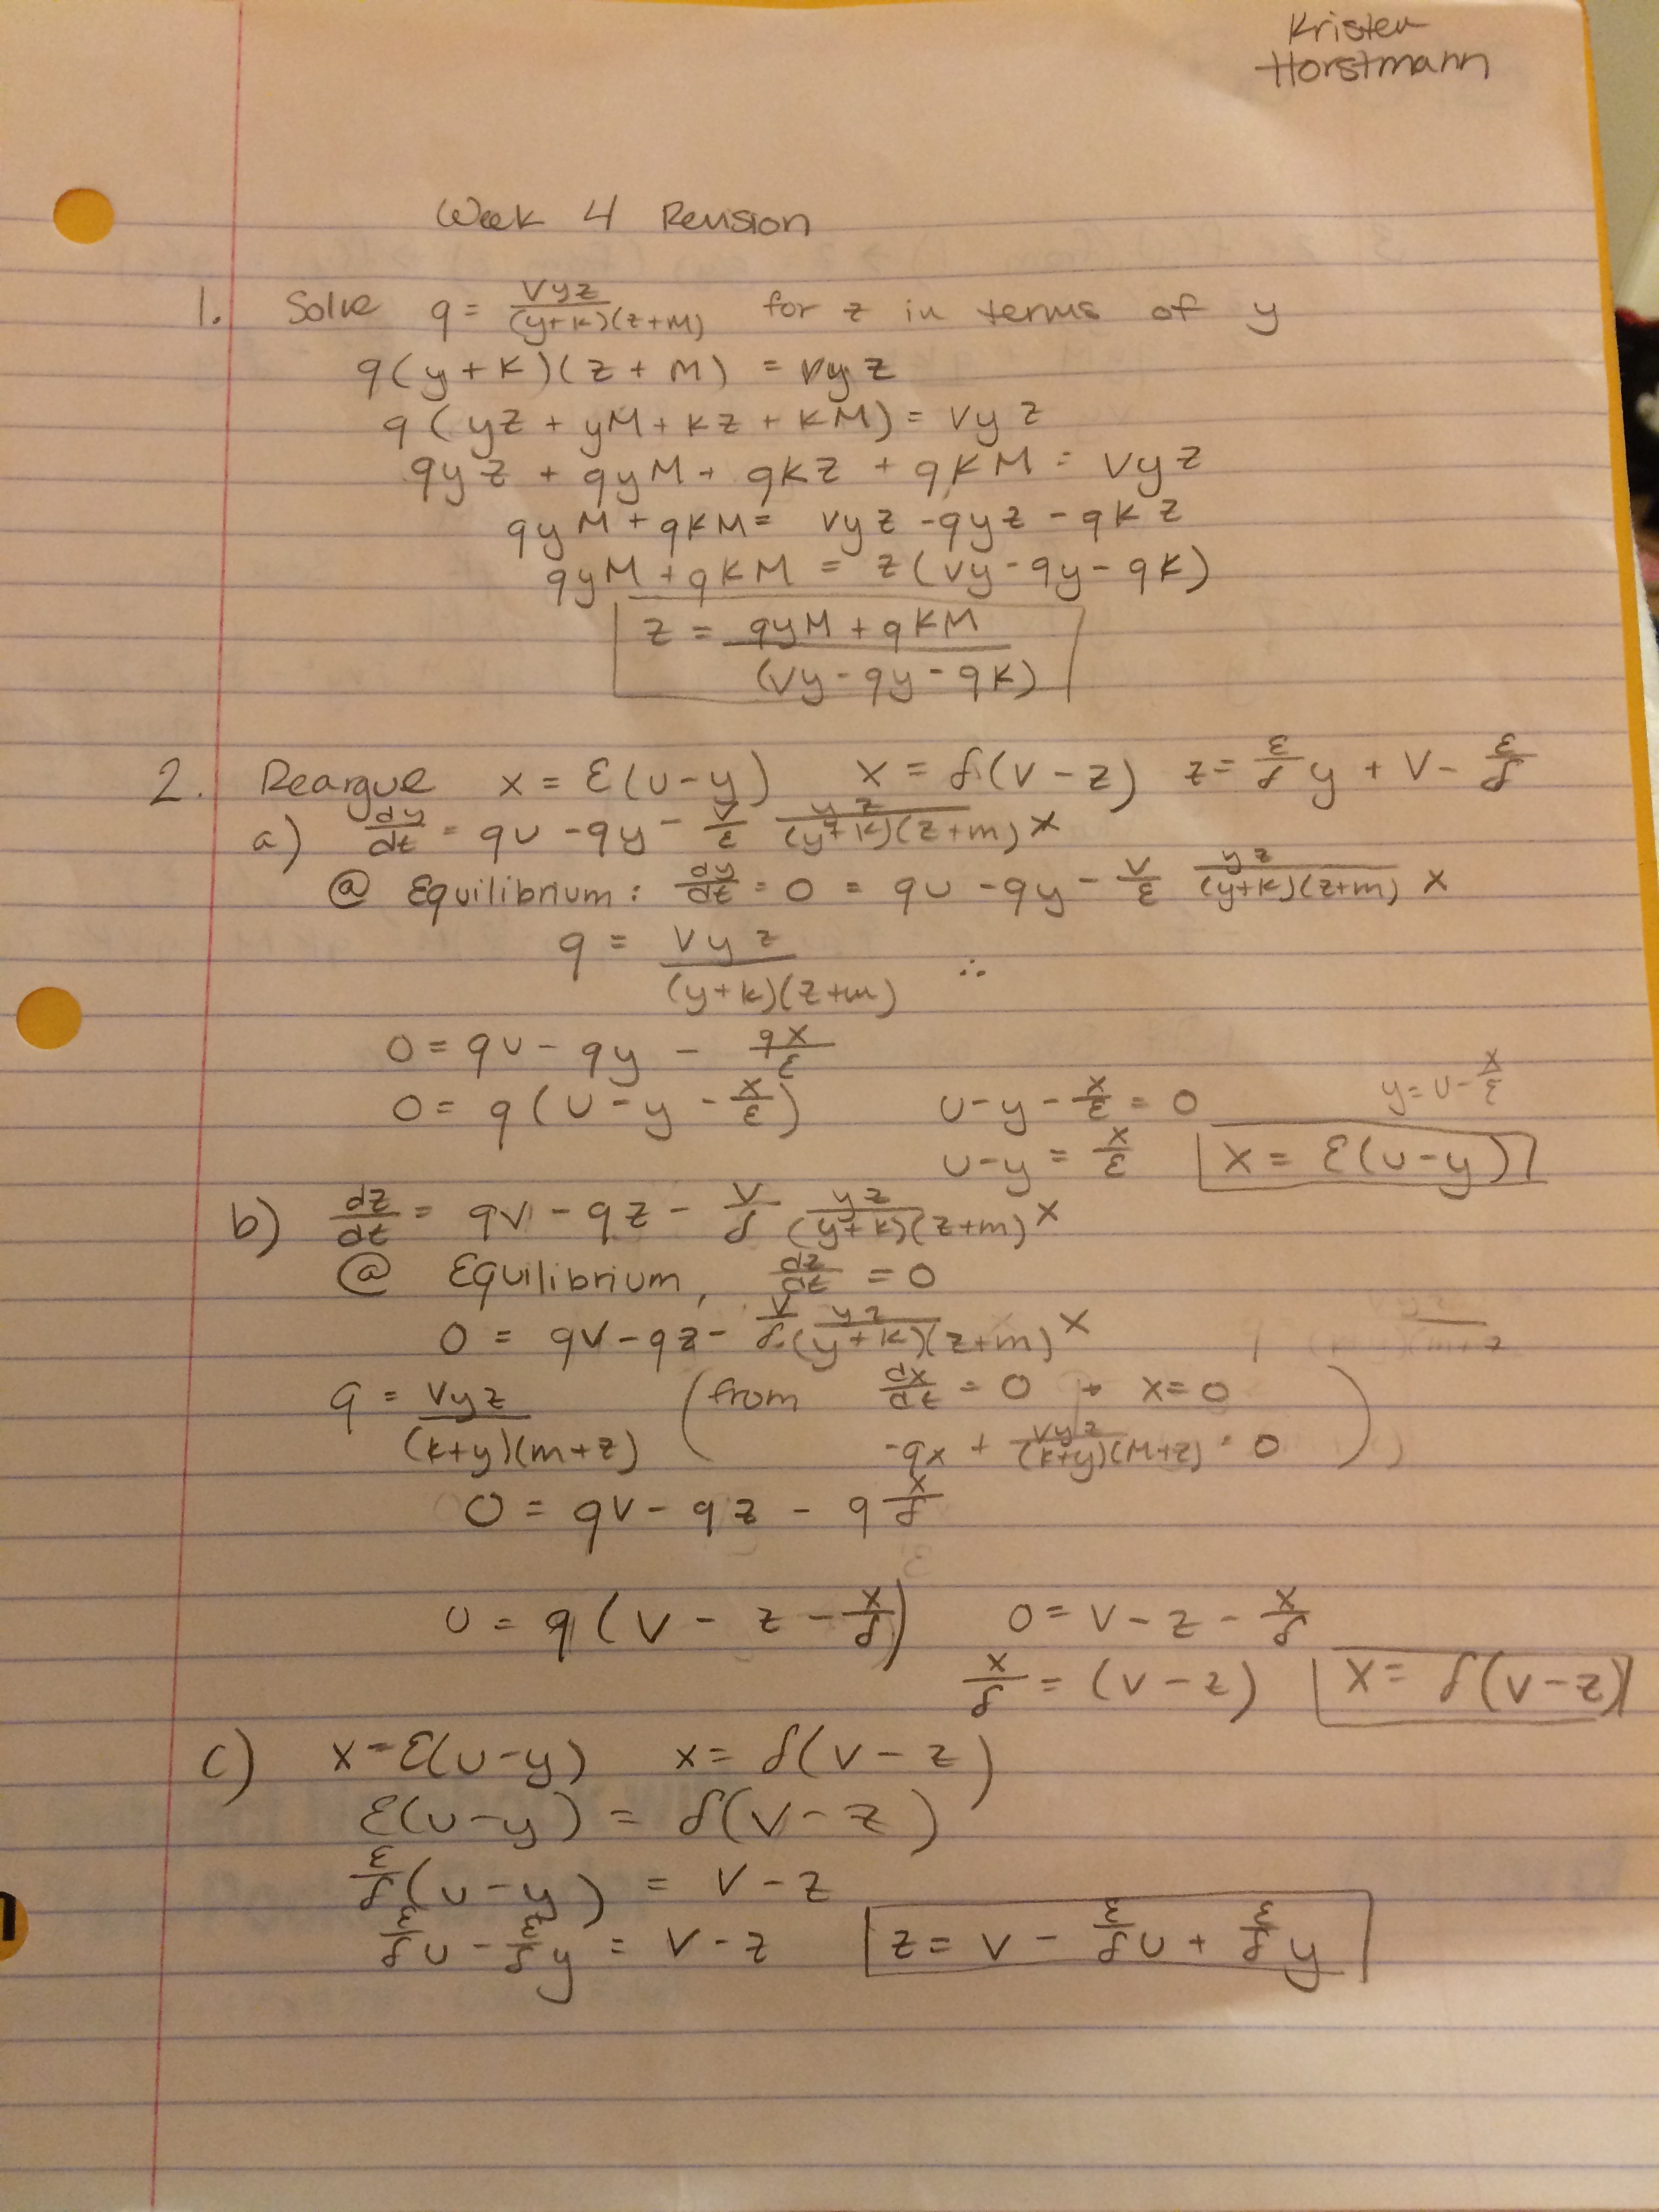 Kristen
Horstmann
Week 4 Revision
1. Solve q = Vyz/(y+K)(z+M) for z in terms of y
q(y+K)(z+M) = Vyz
q(yz + yM + Kz + KM) = Vyz
qyz + qyM + qKz + qKM = Vyz
qyM + qKM = Vyz - qyz - qKz
qyM + qKM = z(Vy - qy - qK)
z = qyM + qKM/(Vy - qy - qK)
2. Reargue x = ε(u-y) x = δ(v-z) z = ε/δ y + v - ε/δ
a) dy/dt = qu - qy - V/ε yz/(y+K)(z+m) x
@ Equilibrium: dy/dt = 0 = qu - qy - V/ε yz/(y+K)(z+m) x
q = Vyz/(y+k)(z+m) ∴
0 = qu - qy - qx/ε
0 = q(u - y - x/ε) u - y - x/ε = 0 y = u - x/ε
u - y = x/ε x = ε(u-y)
b) dz/dt = qv - qz - V/δ yz/(y+k)(z+m) x
@ Equilibrium, dz/dt = 0
0 = qv - qz - V/δ yz/(y+k)(z+m) x
q = Vyz/(k+y)(m+z) (from dx/dt = 0 + x=0
-qx + Vyz/(k+y)(M+z) = 0)
0 = qv - qz - q x/δ
0 = q(v - z - x/δ) 0 = v - z - x/δ
x/δ = (v-z) x = δ(v-z)
c) x = ε(u-y) x = δ(v-z)
ε(u-y) = δ(v-z)
ε/δ(u-y) = v-z
ε/δ u - ε/δ y = v-z z = v - ε/δ u + ε/δ y